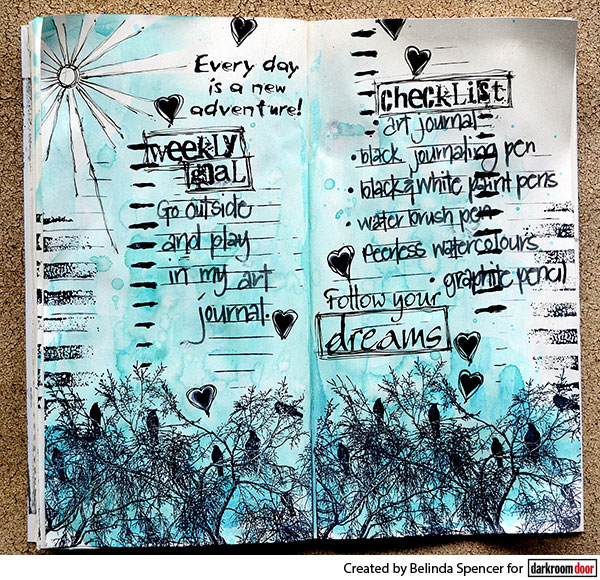 Every day
is a new
adventure!
weekly
goal
Go outside
and play
in my art
journal.
checklist
art journal
• black journaling pen
• black & white paint pens
• water brush pen
Peerless watercolours
• graphite pencil
Follow your
dreams
Created by Belinda Spencer for darkroomdoor